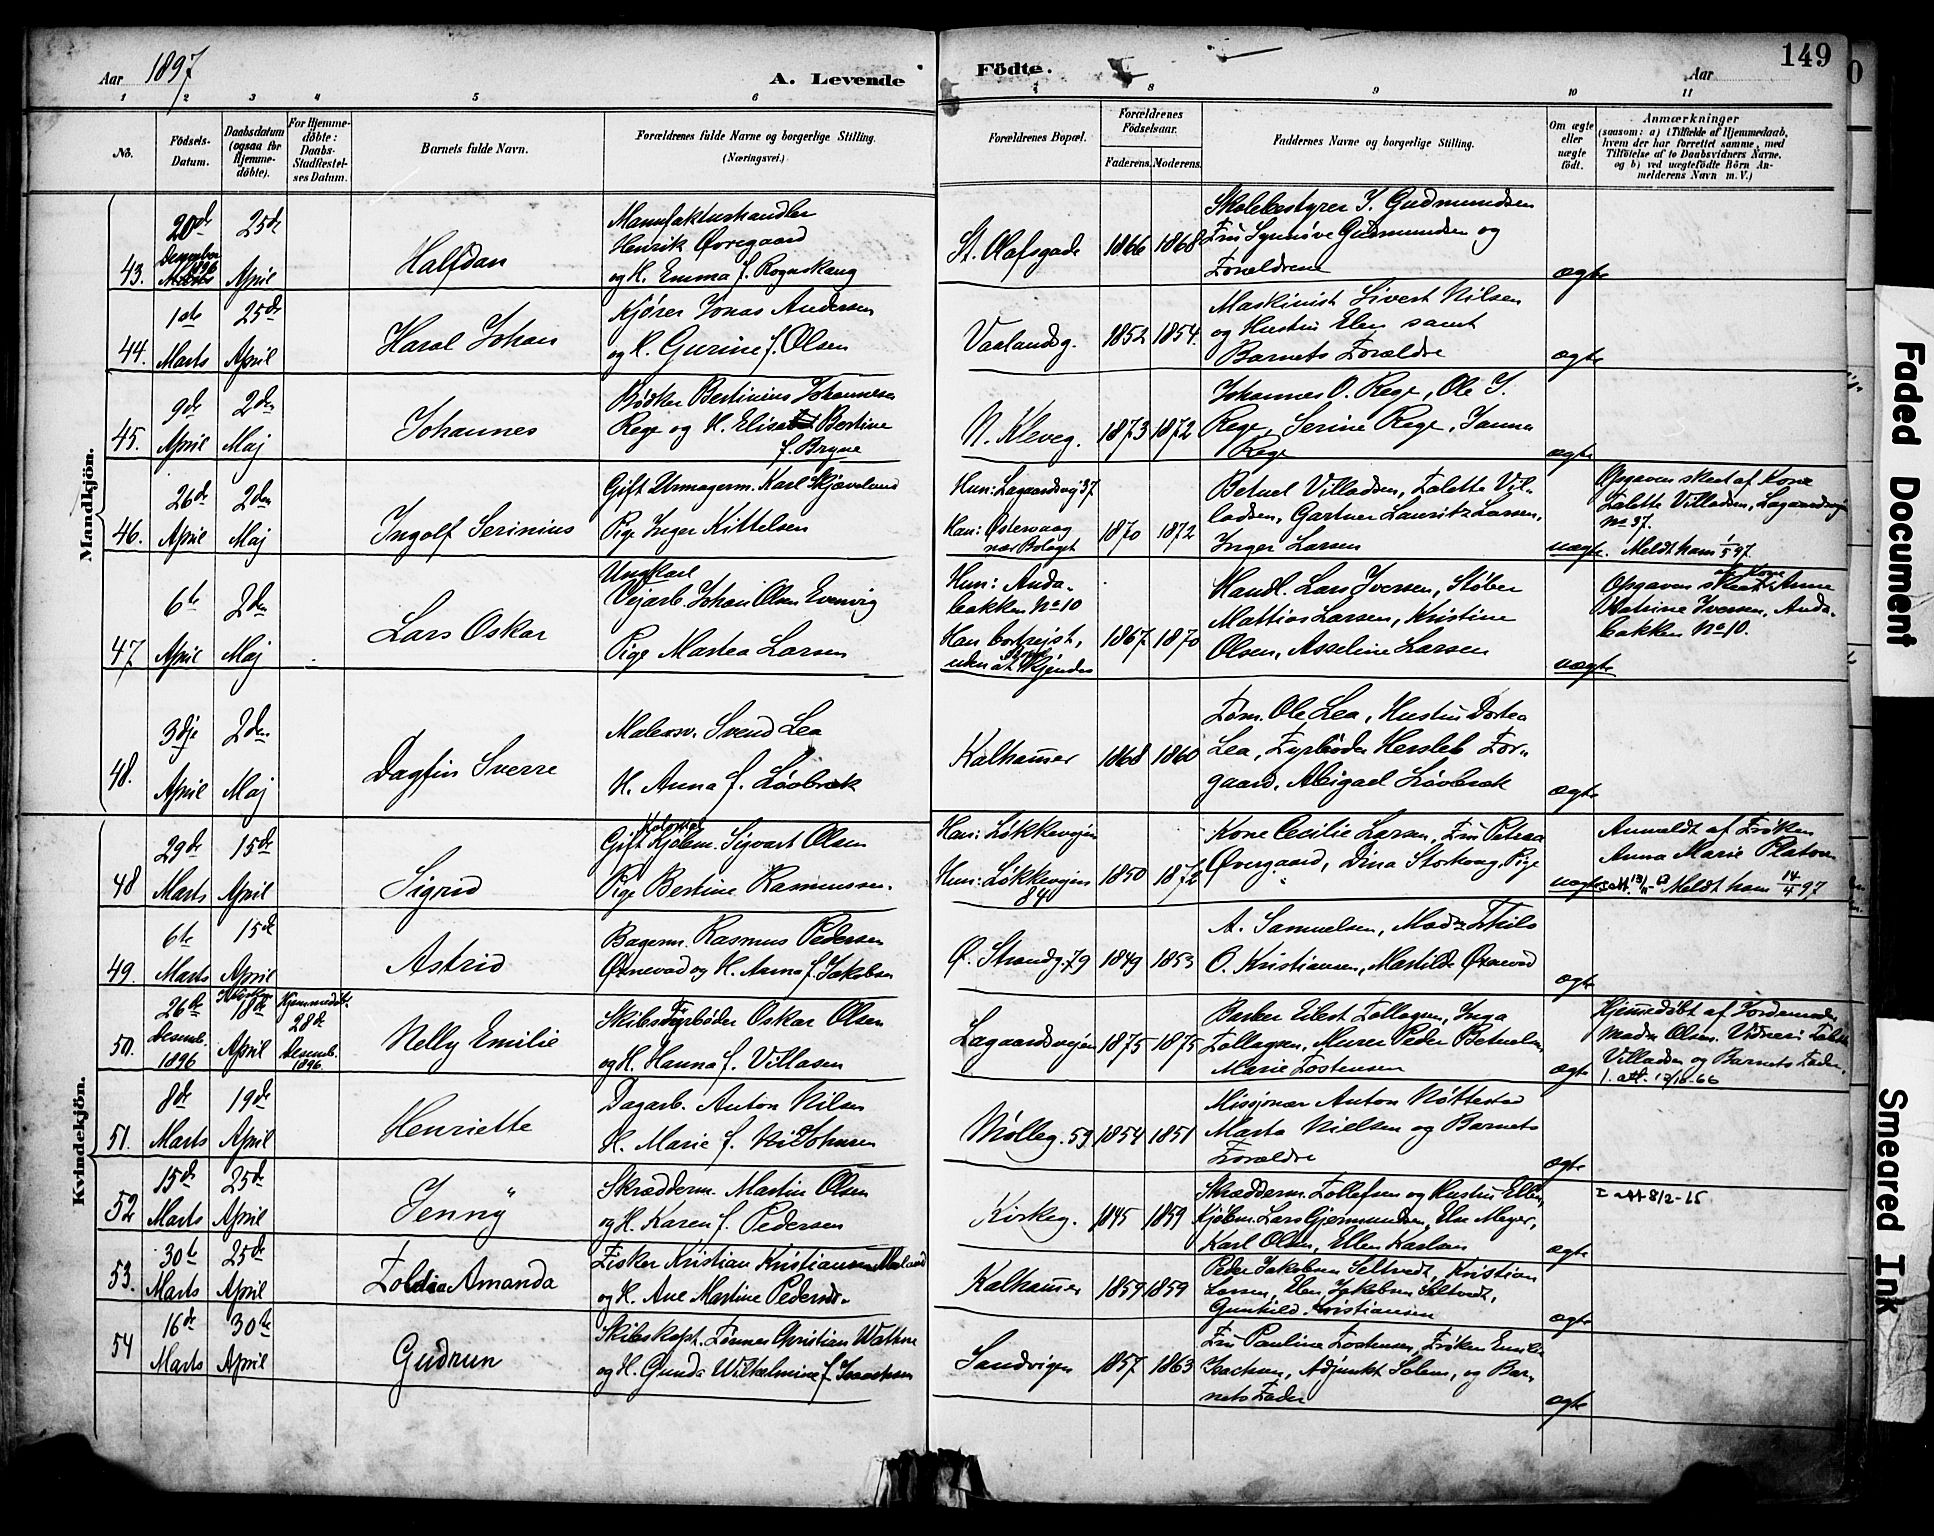 Aar 1897
A. Levende
Födte.
Aar
149
1 2 3 4 5 6 7 8 9 10 11
No.
Födsels-
Datum.
Daabsdatum
(ogsaa for
Hjemme-
døbte).
For Hjemme-
døbte:
Daabs-
Stadfæstel-
ses Datum.
Barnets fulde Navn.
Forældrenes fulde Navne og borgerlige Stilling.
(Næringsvei.)
Forældrenes Bopæl.
Forældrenes
Födselsaar.
Faderens. Moderens.
Faddernes Navne og borgerlige Stilling.
Om ægte
eller
uægte
födt.
Anmærkninger
(saasom: a) i Tilfælde af Hjemmedaab,
hvem der har forrettet samme, med
Tilföielse af to Daabsvidners Navne,
og b) ved uægtefödte Börn An-
melderens Navn m. V.)
Mandkjön.
43. 20de December 1896
25de April
Halfdan
Manufakturhandler
Henrik Øvregaard
og H. Emma f. Rognskaug
St. Olafsgade 1866 1868
Skolebestyrer I. Gudmundsen
Fru Synnøve Gudmundsen og
Forældrene
ægte
44. 1ste Marts
25de April
Haral Johan
Kjører Jonas Andersen
og H. Gurine f. Olsen
Vaalandsg. 1852 1854
Maskinist Sivert Nilsen
og Hustru Elen samt
Barnets Forældre
ægte
45. 9de April
2den Maj
Johannes
Bødker Bertinius Johannesen
Rege og H. Elisabet Bertine
f. Bryne
N. Kleveg. 1873 1872
Johannes O. Rege, Ole I.
Rege, Serine Rege, Janna
Rege
ægte
46. 26de April
2den Maj
Ingolf Serinius
Gift Urmagerm. Karl Skjævelund
Pige Inger Kittelsen
Hun: Lagaardsvej 37
Han: Østervaag
nær Bolaget
1870 1872
Betuel Villadsen, Talette Vil-
ladsen, Gartner Lauritz Larsen,
Inger Larsen
uægte.
Opgaven skeet af Kone
Talette Villadsen, Lagaardsvej
No 37.
Meldt ham 1/5 97
47 6te April
2den Maj
Lars Oskar
Ungkarl
Vejarb. Johan Olsen Evenvig
Pige Martea Larsen
Hun: Anda-
bakken No 10
Han bortrejst,
uden at kjendes
1867 1870
Handl. Lars Iversen, Støber
Mattias Larsen, Kristine
Olsen, Asseline Larsen
uægte
Opgaven skeet af Kone Anne
Katrine Iversen, Anda-
bakken No 10.
48. 3dje April
2den Maj
Dagfin Sverre
Malersv. Svend Lea
H. Anna f. Løvbræk
Kalhammer 1868 1860
Tøm. Ole Lea, Hustru Dortea
Lea, Fyrbøder Hersleb For-
gaard, Abigael Løvbræk
ægte
Kvindekjön.
48 29de Marts
15de April
Sigrid
Gift Kjøbm. Sigvart Olsen
Pige Bertine Rasmussen.
Han: Løkkevejen
Hun: Løkkevejen
84
1850 1872
Kone Cecilie Larsen, Fru Petraa
Øvergaard, Dina Storhaug, Pige
uægte
Anmeldt af Frøken
Anna Marie Platou
Meldt ham 14/4 97
49. 6te Marts
15de April
Astrid
Bagerm. Rasmus Pedersen
Øxnevad og H. Anna f. Jakobsen
Ø. Strandg. 79 1849 1853
A. Samuelsen, Mad. Thilo
O. Kristiansen, Martilde Øxnevad
ægte
50. 26de Desemb. 1896
18de April
Hjemmedøbt.
28de
Desemb.
1896
Nelly Emilie
Skibsfyrbøder Oskar Olsen
og H. Hanna f. Villasen
Lagaardsvejen 1875 1875
Barber Eibert Tollagsen, Inga
Tollagsen, Murer Peder Betuelsen
Marie Tostensen
ægte
Hjemmedøbt af Jordemoder
Madm Olsen. Vidner: Talette
Villadsen og Barnets Fader.
1. att. 12/10-66
51. 8de Marts
19de April
Henriette
Dagarb. Anton Nilsen
H. Marie f. Johnsen
Mølleg. 59 1854 1851
Missjonær Anton Nøttestad
Marta Nielsen og Barnets
Forældre
ægte
52 15de Marts
25de April
Jenny
Skrædderm. Martin Olsen
og H. Karen f. Pedersen
Kirkeg. 1845 1859
Skrædderm. Tollefsen og Hustru Ellen,
Kjøbm. Lars Gjermundsen, Else Meyer,
Karl Olsen, Ellen Karlsen
ægte
I att 8/2-15
53. 30te Marts
25de April
Amanda
Fisker Kristian Kristiansen
og H. Ane Martine Pedersdr.
Kalhammer 1859 1859
Peder Jakobsen Seltvedt, Kristian
Larsen, Elen Jakobsen Seltvedt,
Gunhild Kristiansen
ægte
54 16de Marts
30te April
Gudrun
Skibskapt. Tønnes Christian Wathne
og H. Gunda Wilhelmine f. Isaachsen
Sandvigen 1857 1863
Fru Pauline Tostensen, Frøken Emilie
Isachsen, Adjunkt Solem, og Bar-
nets Fader
ægte
Faded Document
Smeared Ink